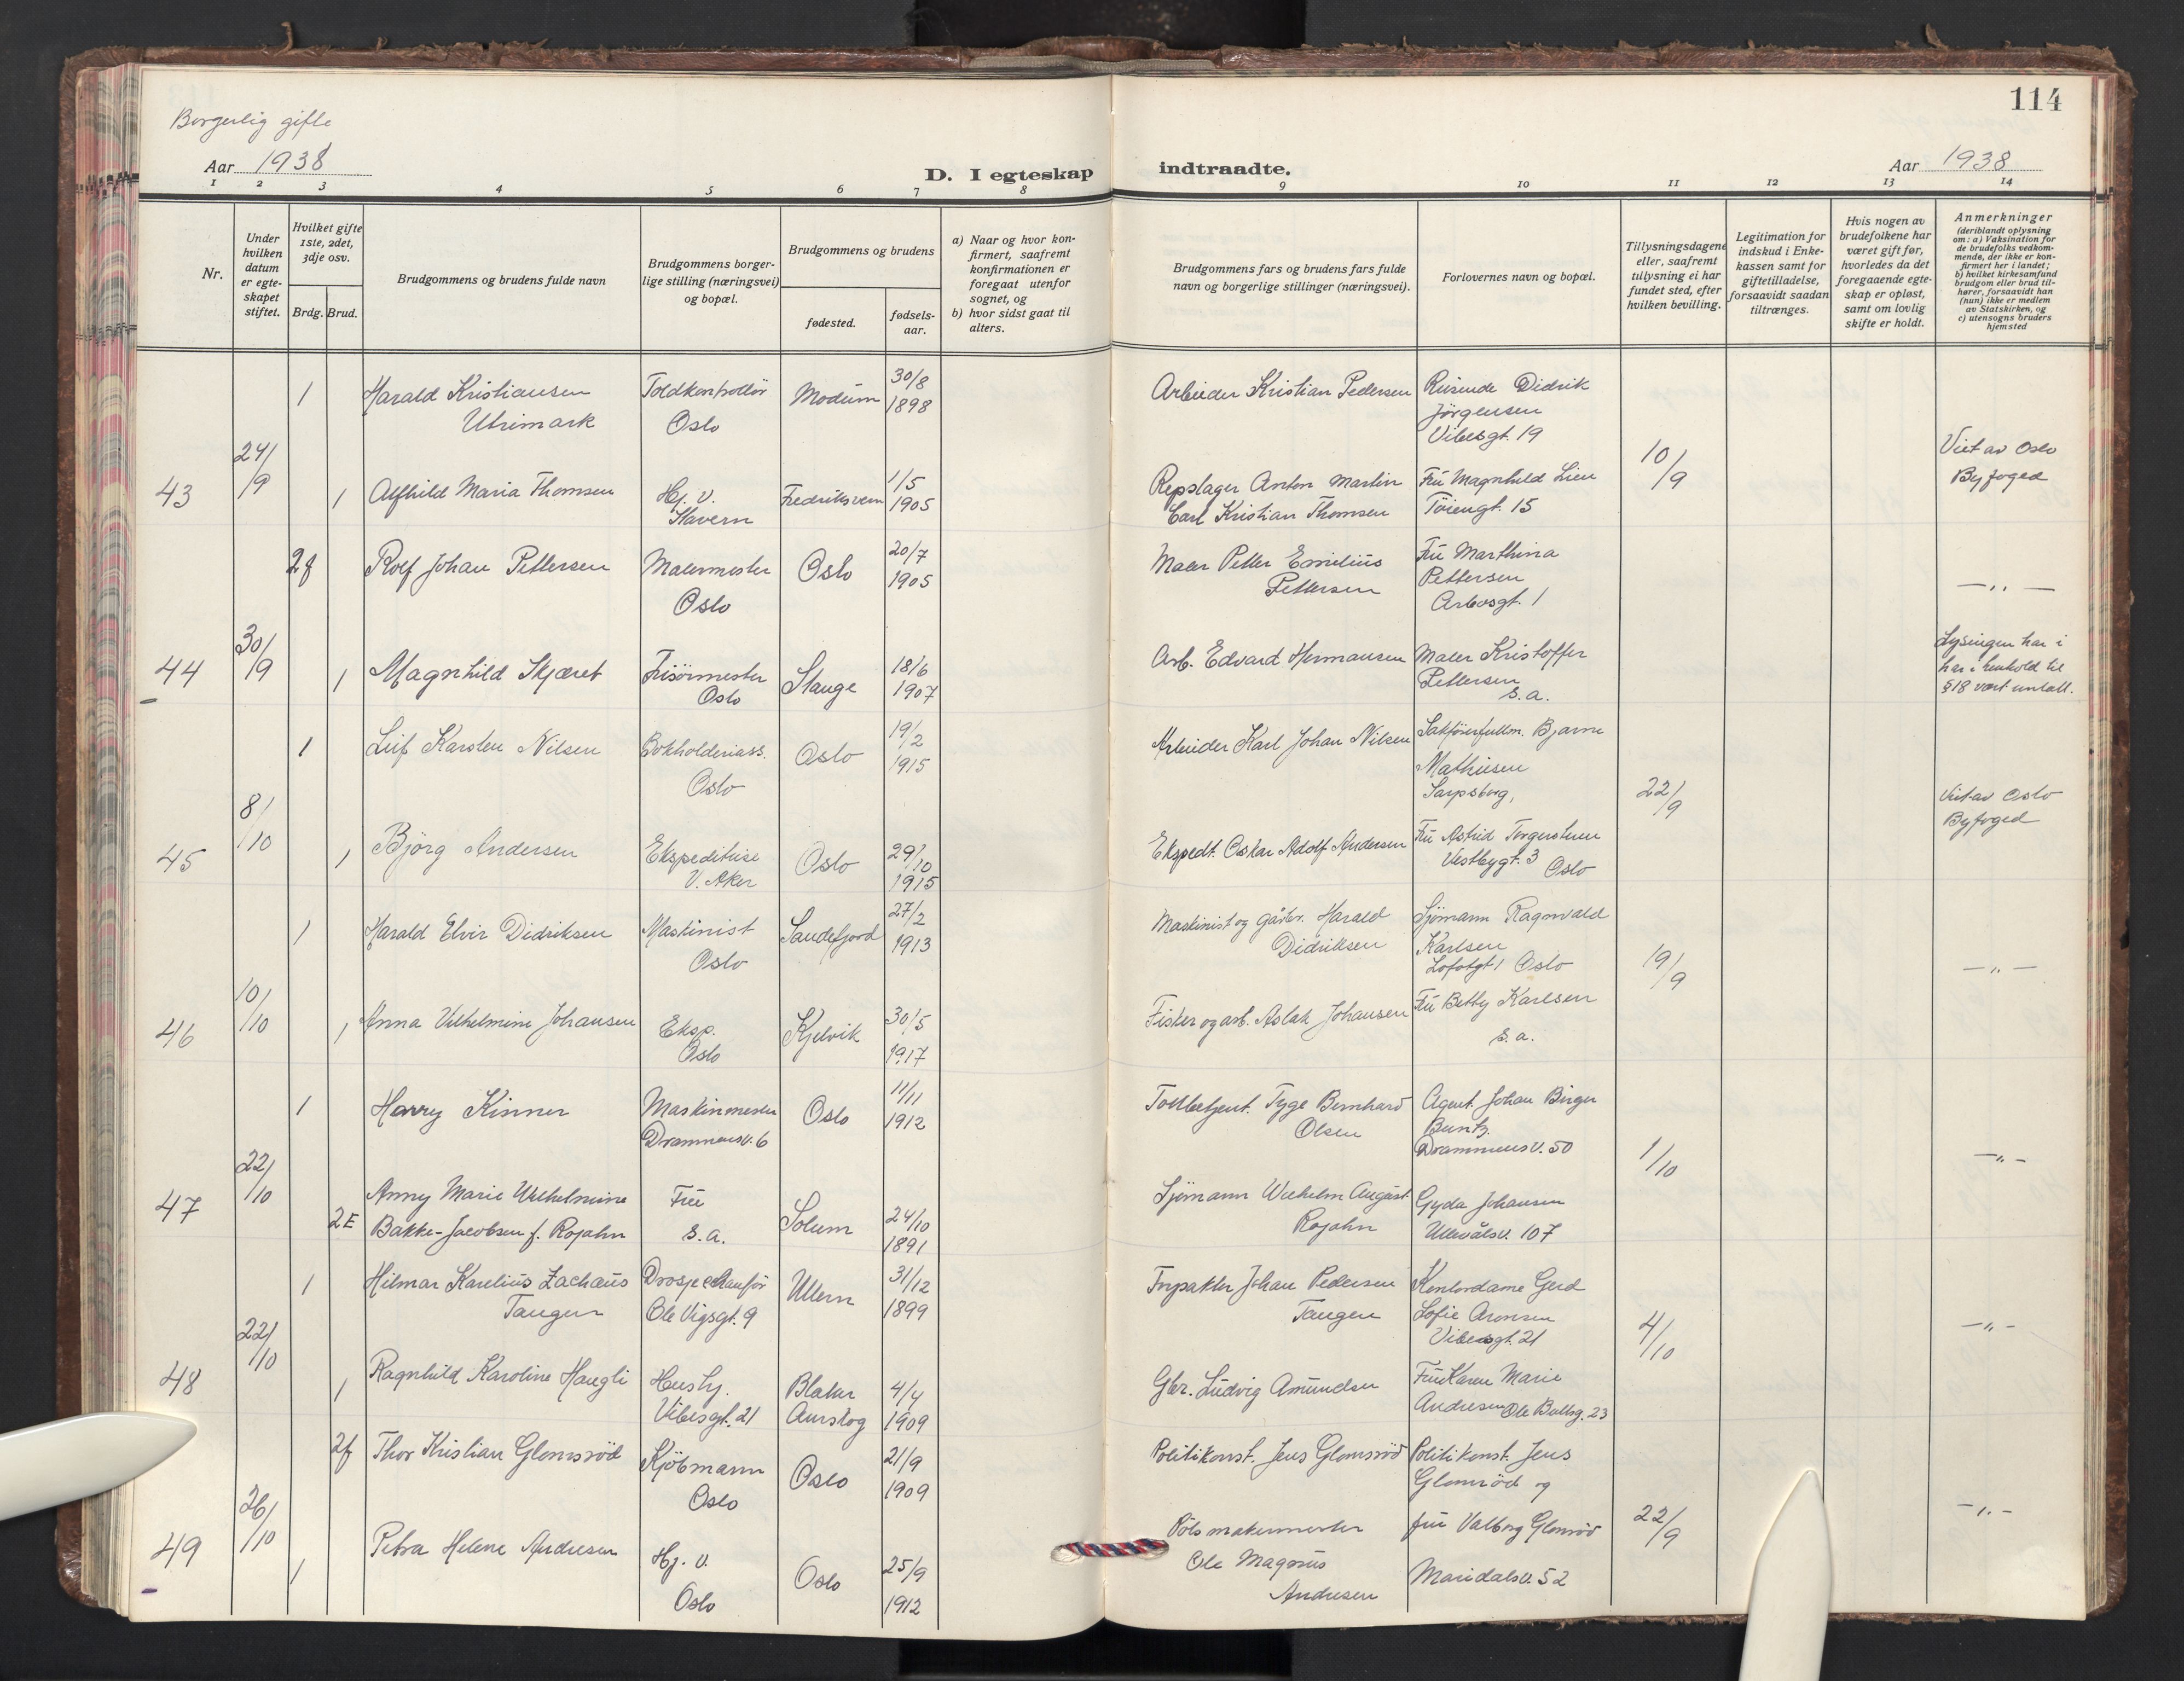 Borgerlig gifte
114
Aar 1938
D. I egteskap indtraadte.
Aar 1938
1 2 3 4 5 6 7 8 9 10 11 12 13 14
Nr.
Under
hvilken
datum
er egte-
skapet
stiftet.
Hvilket gifte
1ste, 2det,
3dje osv.
Brdg. Brud.
Brudgommens og brudens fulde navn
Brudgommens borger-
lige stilling (næringsvei)
og bopæl.
Brudgommens og brudens
fødested.
fødsels-
aar.
a) Naar og hvor kon-
firmert, saafremt
konfirmationen er
foregaat utenfor
sognet, og
b) hvor sidst gaat til
alters.
Brudgommens fars og brudens fars fulde
navn og borgerlige stillinger (næringsvei).
Forlovernes navn og bopæl.
Tillysningsdagene
eller, saafremt
tillysning ei har
fundet sted, efter
hvilken bevilling.
Legitimation for
indskud i Enke-
kassen samt for
giftetilladelse,
forsaavidt saadan
tiltrænges.
Hvis nogen av
brudefolkene har
været gift før,
hvorledes da det
foregaaende egte-
skap er opløst,
samt om lovlig
skifte er holdt.
Anmerkninger
(deriblandt oplysning
om: a) Vaksination for
de brudefolks vedkom-
mende, der ikke er kon-
firmert her i landet;
b) hvilket kirkesamfund
brudgom eller brud til-
hører, forsaavidt han
(hun) ikke er medlem
av Statskirken, og
c) utensogns bruders
hjemsted
43
24/9
1
Harald Kristiansen
Utrimark
Toldkontrollör
Oslo
Modum
30/8
1898
Arbeider Kristian Pedersen
Didrik
Jörgensen
Vibesgt. 19
10/9
Viet av Oslo
Byfoged
1
Alfhild Maria Thomsen
Hj. v.
Stavern
Fredriksvern
1/5
1905
Repslager Anton Martin
Carl Kristian Thomsen
Frü Magnhild Lien
Töiengt. 15
44
30/9
2f
Rolf Johan Pettersen
Malermester
Oslo
Oslo
20/7
1905
Maler Petter Emilius
Pettersen
Frü Marthina
Pettersen
Arbosgt. 1
— ,, —
1
Magnhild Skjæret
Frisörmester
Oslo
Stange
18/6
1907
Arb. Edvard Hermansen
Maler Kristoffer
Pettersen
s.a.
Lysingen har i
har i henhold til
§ 18 vært untatt.
45
8/10
1
Leif Karsten Nilsen
Bokholderiass.
Oslo
Oslo
19/2
1915
Arbeider Karl Johan Nilsen
Sakförerfullm. Bjarne
Mathiesen
Sarpsborg,
22/9
Viet av Oslo
Byfoged
1
Björg Andersen
Ekspeditrise
V. Aker
Oslo
29/10
1915
Ekspedt. Oskar Adolf Andersen
Frü Astrid Torgerstuen
Vestbygt. 3 Oslo
46
10/10
1
Harald Elvir Didriksen
Maskinist
Oslo
Sandefjord
27/2
1913
Maskinist og gårbr. Harald
Didriksen
Sjömann Ragnvald
Karlsen
Lofotgt 1 Oslo
19/9
— ,, —
1
Anna Vilhelmine Johansen
Eksp.
Oslo
Kjelvik
30/5
1917
Fisker og arb. Aslak Johansen
Frü Betty Karlsen
s.a.
47
22/10
1
Harry Kinner
Maskinmester
Drammensv. 6
Oslo
11/11
1912
Tollbetjent. Tyge Bernhard
Olsen
Agent. Johan Birger
Buntz.
Drammensv. 50
1/10
— ,, —
2E
Anny Marie Wilhelmine
Bakke-Jacobsen f. Rojahn
Frü
s.a.
Solum
24/10
1891
Sjömann Wilhelm August
Rojahn
Gyda Johansen
Ullevålsv. 107
48
22/10
1
Hilmar Karelius Zachaüs
Tangen
Drosjechauför
Ole Vigsgt. 9
Ullern
31/12
1899
Forpakter Johan Pedersen
Tangen
Kontordame Gerd
Sofie Aronsen
Vibesgt. 21
4/10
— ,, —
1
Ragnhild Karoline Haugli
Hüshj.
Vibesgt. 21
Blaker
Aurskog
4/4
1909
Gbr. Ludvig Amundsen
Frü Karen Marie
Andresen Ole Bullsg. 23
49
26/10
2f
Thor Kristian Glomsröd
Kjöbmann
Oslo
Oslo
21/9
1909
Politikonst. Jens Glomsröd
Politikonst. Jens
Glomsröd og
22/9
— ,, —
1
Petra Helene Andresen
Hj. v.
Oslo
Oslo
25/9
1912
Pölsmakermester
Ole Magnus
Andresen
frü Valborg Glomsröd
Maridalsv. 52